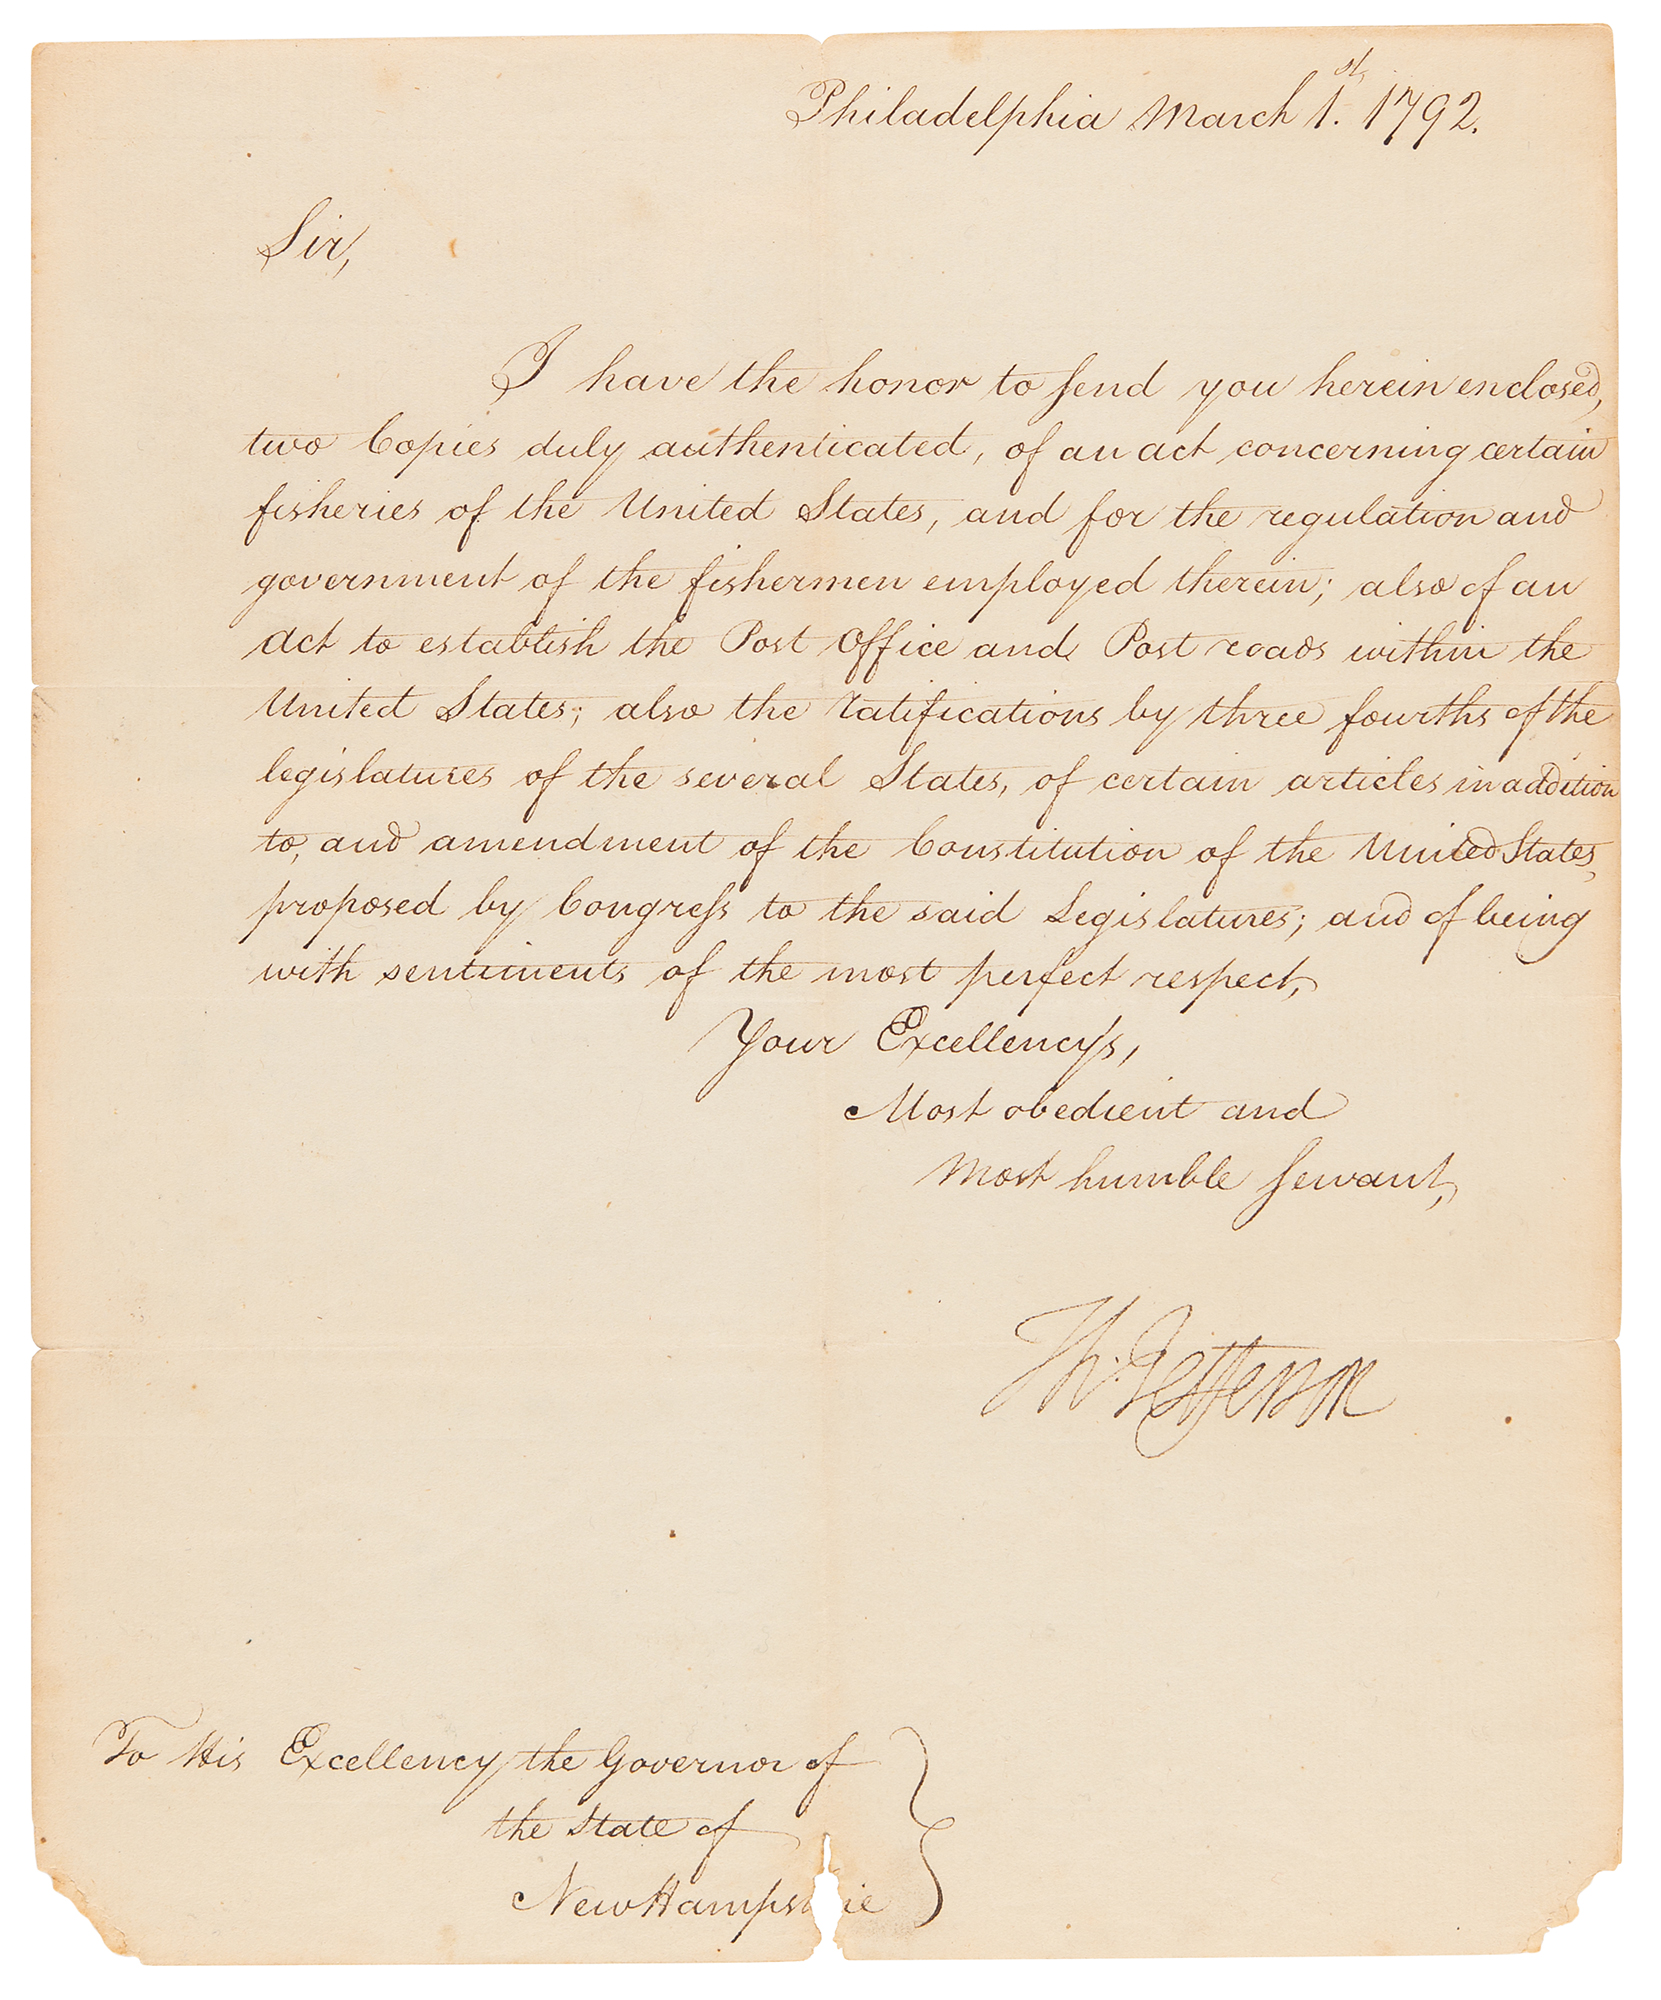 Philadelphia March 1st. 1792.
Sir,
I have the honor to send you herein enclosed,
two Copies duly authenticated, of an act concerning certain
fisheries of the United States, and for the regulation and
government of the fishermen employed therein; also of an
Act to establish the Post Office and Post roads within the
United States; also the ratifications by three fourths of the
legislatures of the several States, of certain articles in addition
to, and amendment of the Constitution of the United States,
proposed by Congress to the said Legislatures; and of being
with sentiments of the most perfect respect,
Your Excellency's,
Most obedient and
Most humble servant,
Th. Jefferson
To His Excellency the Governor of
the State of
New Hampshire